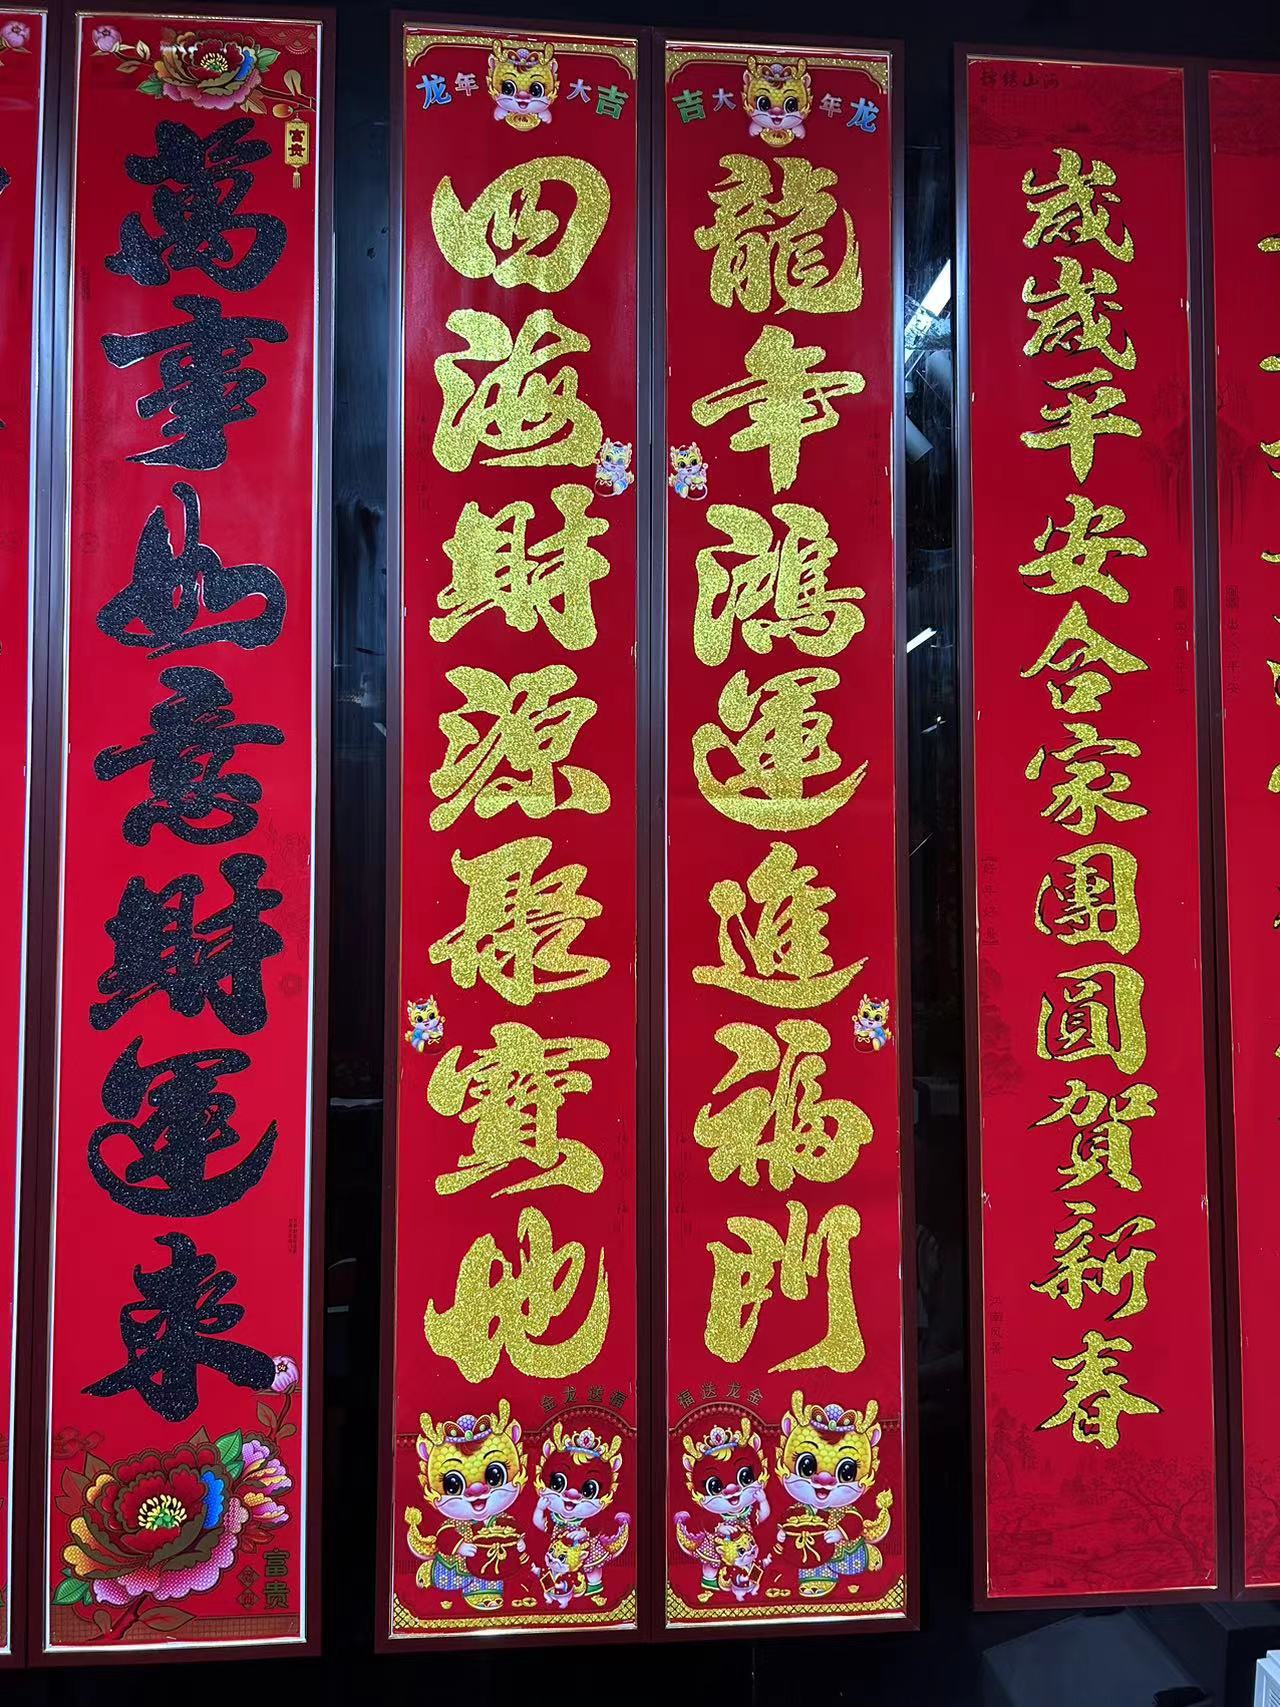 富贵
萬事如意財運來
富贵
龙年大吉
四海財源聚寶地
金龙送福
吉大年龙
龍年鴻運進福門
福送龙金
歲歲平安合家團圓賀新春
江南风景